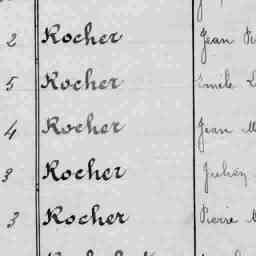 2 Rocher Jean
5 Rocher Emile
4 Rocher Jean M
3 Rocher
3 Rocher Pierre